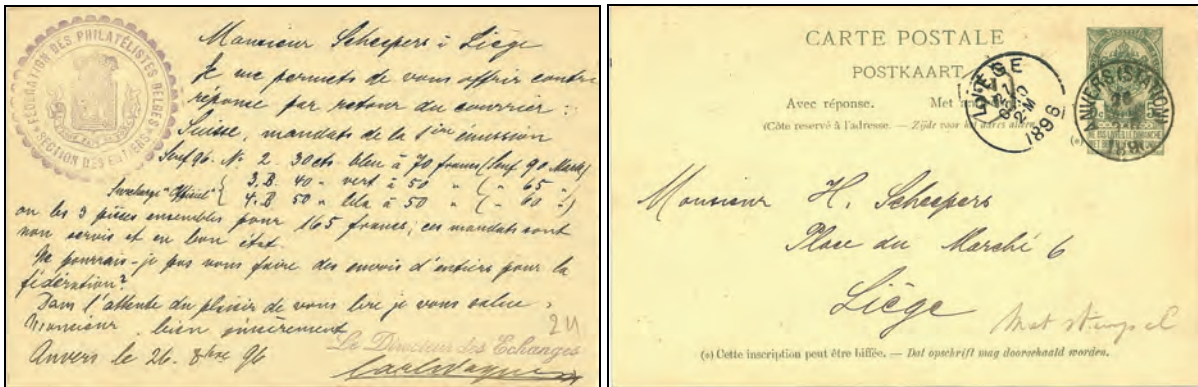 FÉDÉRATION DES PHILATÉLISTES BELGES
SECTION DES ENTIERS
Monsieur Scheepers à Liège
Je me permets de vous offrir contre
réponse par retour du courrier :
Suisse, mandats de la 1ière émission
Senf 96. No 2 - 30cts - bleu à 70 francs (Senf 90 Mark)
Surcharge "Officiel" { 3.B. 40 " vert à 50 " ( " 65 " )
4.B. 50 " lila à 50 " ( " 60 " )
ou les 3 pièces ensembles pour 165 francs; ces mandats sont
non servis et en bon état.
Ne pourrais-je pas vous faire des envois d'entiers pour la
fédération?
Dans l'attente du plaisir de vous lire je vous salue,
Monsieur, bien sincèrement
Anvers le 26. 8bre 96
Le Directeur des Echanges
24
CARTE POSTALE
POSTKAART
Avec réponse. Met
(Côte reservé à l'adresse. — Zijde voor het adres alleen.
LIÉGE
1896
ANVERS (STATION)
26
NE PAS LIVRER LE DIMANCHE
(*)
Monsieur H. Scheepers
Place du Marché 6
Liège
Mat stempel
(*) Cette inscription peut être biffée. — Dat opschrift mag doorgehaald worden.